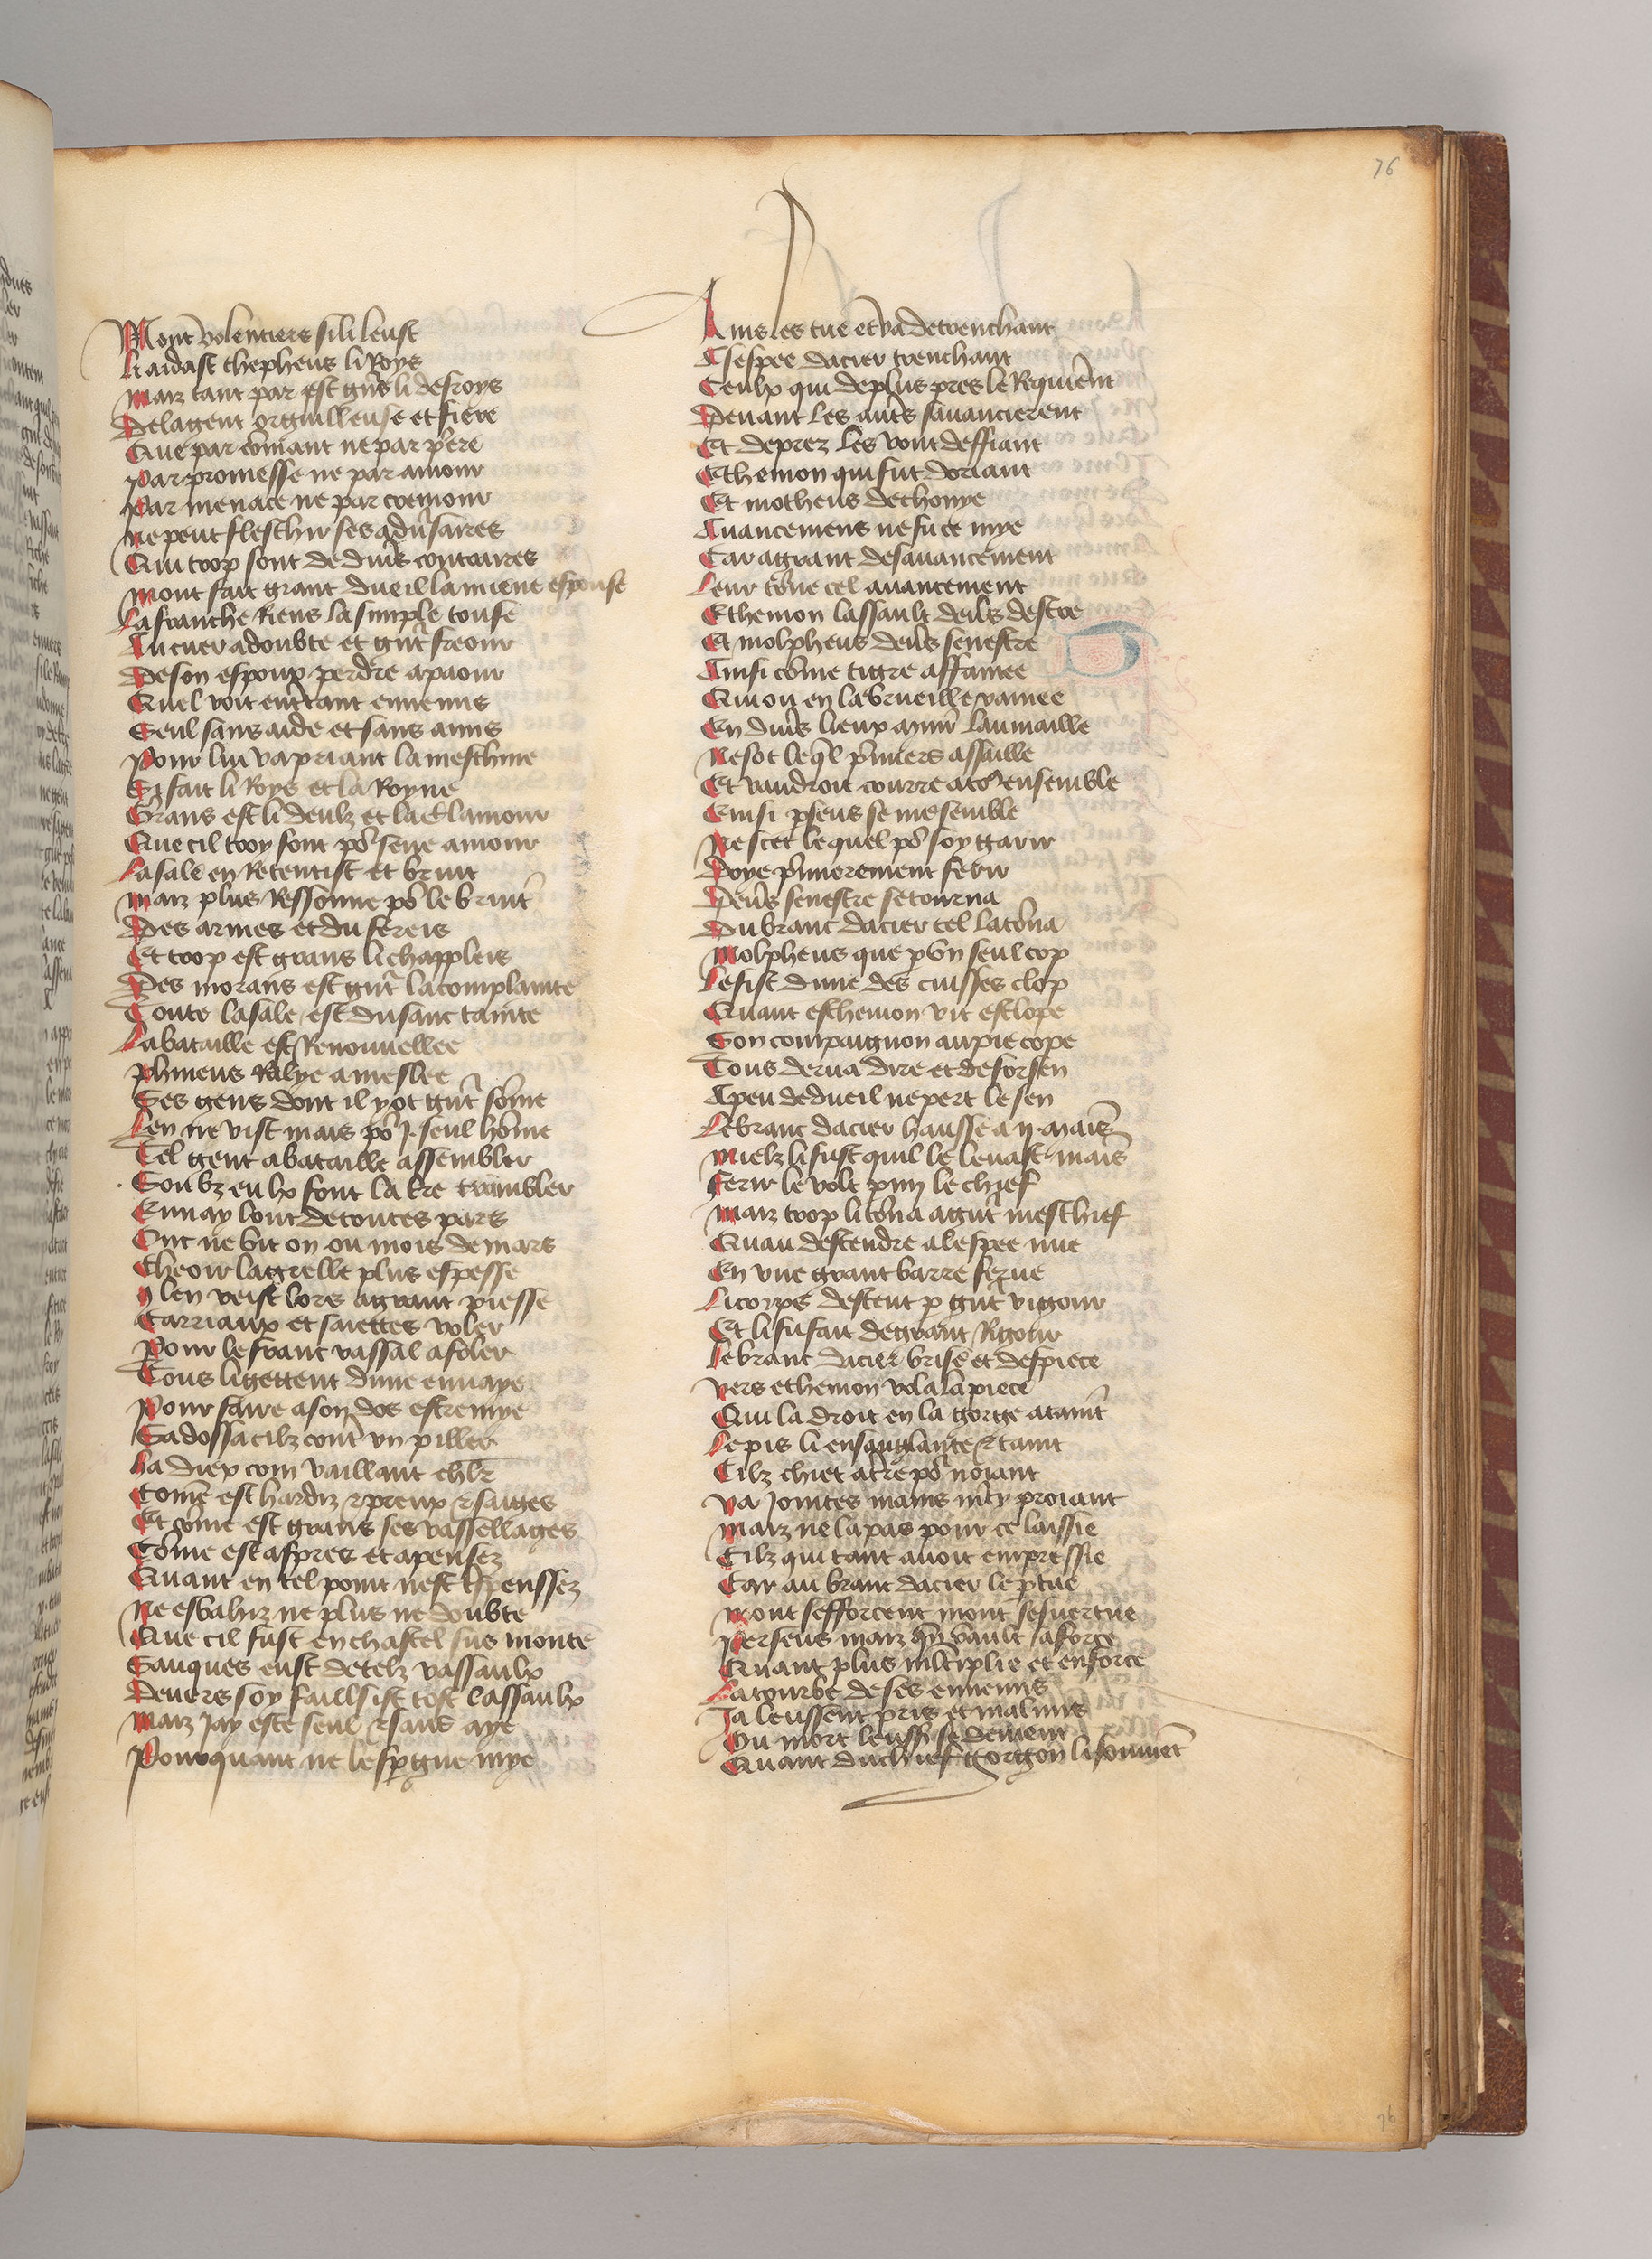 76
Mont volentiers sili leust
Li aidast thepheus li Roys
Maiz tant par est gñs li desroys
Delagent orguilleuse et fiere
Que par cõmant ne par pere
Par promesse ne par amour
Par menace ne par cremour
Ne peut fleschir ses adũsaires
Qui trop sont de diũs contraires
Mont fait grant dueil lamiene espouse
La franche Riens la simple touse
Au cuer a doubte et gñt freour
De son espoux perdre a paour
Quel voit entrtant ennemis
Seul sans aide et sans amis
Pour lui va priant la meschine
Si fait li Roys et la Royne
Grans est li deulz et la clamour
Que cil troy font põ seue amour
La sale en Retentist et bruit
Maiz plus Ressonne põ le bruit
Des armes et du fereis
Et trop est grans li chappleis
Des morans est gñt la complainte
Toute la sale est du sanc tainte
La bataille est Renouvellee
Phineus Ralye a meslee
Ses gens dont il y ot gñt sõme
Len ne vist mais põ .j. seul hõme
Tel gent a bataille assembler
Soubz eulx font la tre trambler
Ennay lont de toutes pars
Onc ne vit on ou mois de mars
Cheoir la grelle plus espesse
Q len veist lors a grant piesse
Carriaux et saiettes voler
Pour le franc vassal afoler
Tous li gettent dune ennaye
Pour faire a son dos estremye
Sadossa cilz cont vn piller
Ha diex com vaillant chlr
Comẽ est hardiz et preux et saiges
Et cõme est grans ses vassellages
Cõme est aspres et apensez
Quant en tel point nest tspenssez
Ne esbahiz ne plus ne doubte
Que cil fust en chastel sus monte
Sauques eust de telz vassaulx
Devers soy faillsist tost lassaulx
Maiz jay este seul et sans aye
Pourquant ne lespgne mye
Ains les tue et va detrenchant
A lespee dacier trenchant
Ceulx qui de plus pres le Requierẽt
Devant les autrs sauancierent
Et deprez les vont deffiant
Ethemon qui fut doriant
Et motheus dethonye
Auancemens ne fu ce mye
Car a grant desauancement
Leur tõne cel auancement
Ethemon lassault deũs destre
Et molpheus deũs senestre
Ainsi cõme tigre affamee
Qui ou en la brueille ramee
En diũs lieux la aumaille
Ne sot leql pmiers assaille
Et vaudroit courre a tõ ensemble
Einsi pseus se me semble
Ne scet le quel põ soy garir
Doye pmierement ferir
Deũs senestre se tourna
Du branc dacier tel latõna
Molpheus que p vn seul cop
Le fist dune des cuisses clop
Quant esthemon vit esclope
Son compaignon au pie cope
Tous derua dire et de forsen
A peu de dueil ne pert le sen
Le branc dacier hausse a .ij. mains
Mielz li fust quil le levast mains
Ferir le volt pmj le chief
Maiz trop li tõna a gñt meschief
Quau descendre a lespee nue
En vne grant barre ferue
Li corps descent p gñt vigour
Et li fu fait de grant Rigour
Le branc dacier brise et despiece
Vers ethemon vola la piece
Qui la droit en la gorge ataint
Le pis li ensanglante et taint
Cilz chiet a tre põ noiant
Va jointes mains mcy proiant
Maiz ne la pas pour ce laissie
Cilz qui tant auoit empressie
Car au branc dacier le ptue
Mont sefforcent mont sesuertue
Perseus maiz qñ vault sa force
Quant plus mltiplie et enforce
La tourbe de ses ennemis
Ja leussent pris et malmis
Ou mort leussẽ se dement
Quant du chief Gorgon li souuiẽt
76